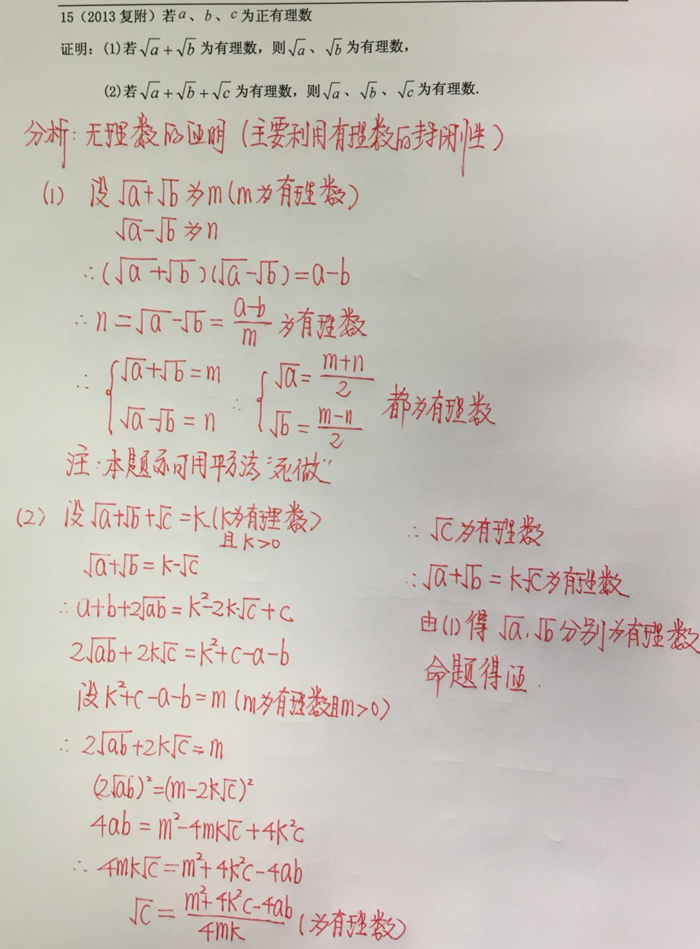 15（2013复附）若a、b、c为正有理数
证明：(1)若√a+√b为有理数，则√a、√b为有理数，
(2)若√a+√b+√c为有理数，则√a、√b、√c为有理数.
分析：无理数的证明（主要利用有理数的封闭性）
(1) 设√a+√b为m(m为有理数)
√a-√b为n
∴(√a+√b)(√a-√b)=a-b
∴n=√a-√b=(a-b)/m为有理数
∴{√a+√b=m ∴{√a=(m+n)/2
√a-√b=n √b=(m-n)/2 都为有理数
注：本题亦可用平方法“死做”
(2) 设√a+√b+√c=k(k为有理数)
且k>0
√a+√b=k-√c
∴a+b+2√ab=k²-2k√c+c
2√ab+2k√c=k²+c-a-b
设k²+c-a-b=m(m为有理数且m>0)
∴2√ab+2k√c=m
(2√ab)²=(m-2k√c)²
4ab=m²-4mk√c+4k²c
∴4mk√c=m²+4k²c-4ab
√c=(m²+4k²c-4ab)/4mk (为有理数)
∴√c为有理数
∴√a+√b=k-√c为有理数
由(1)得√a、√b分别为有理数
命题得证.